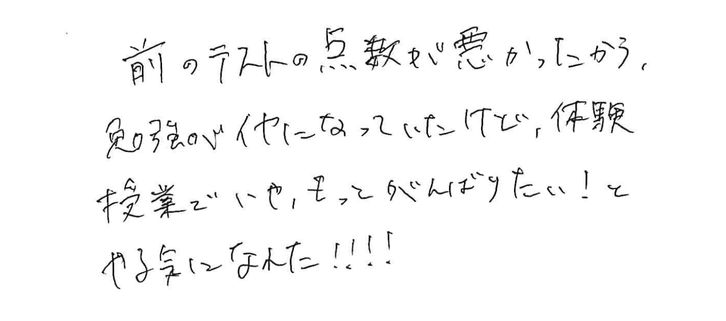 前のテストの点数が悪かったから、
勉強がイヤになっていたけど、体験
授業でいや、もってがんばりたい！と
やる気になれた!!!!